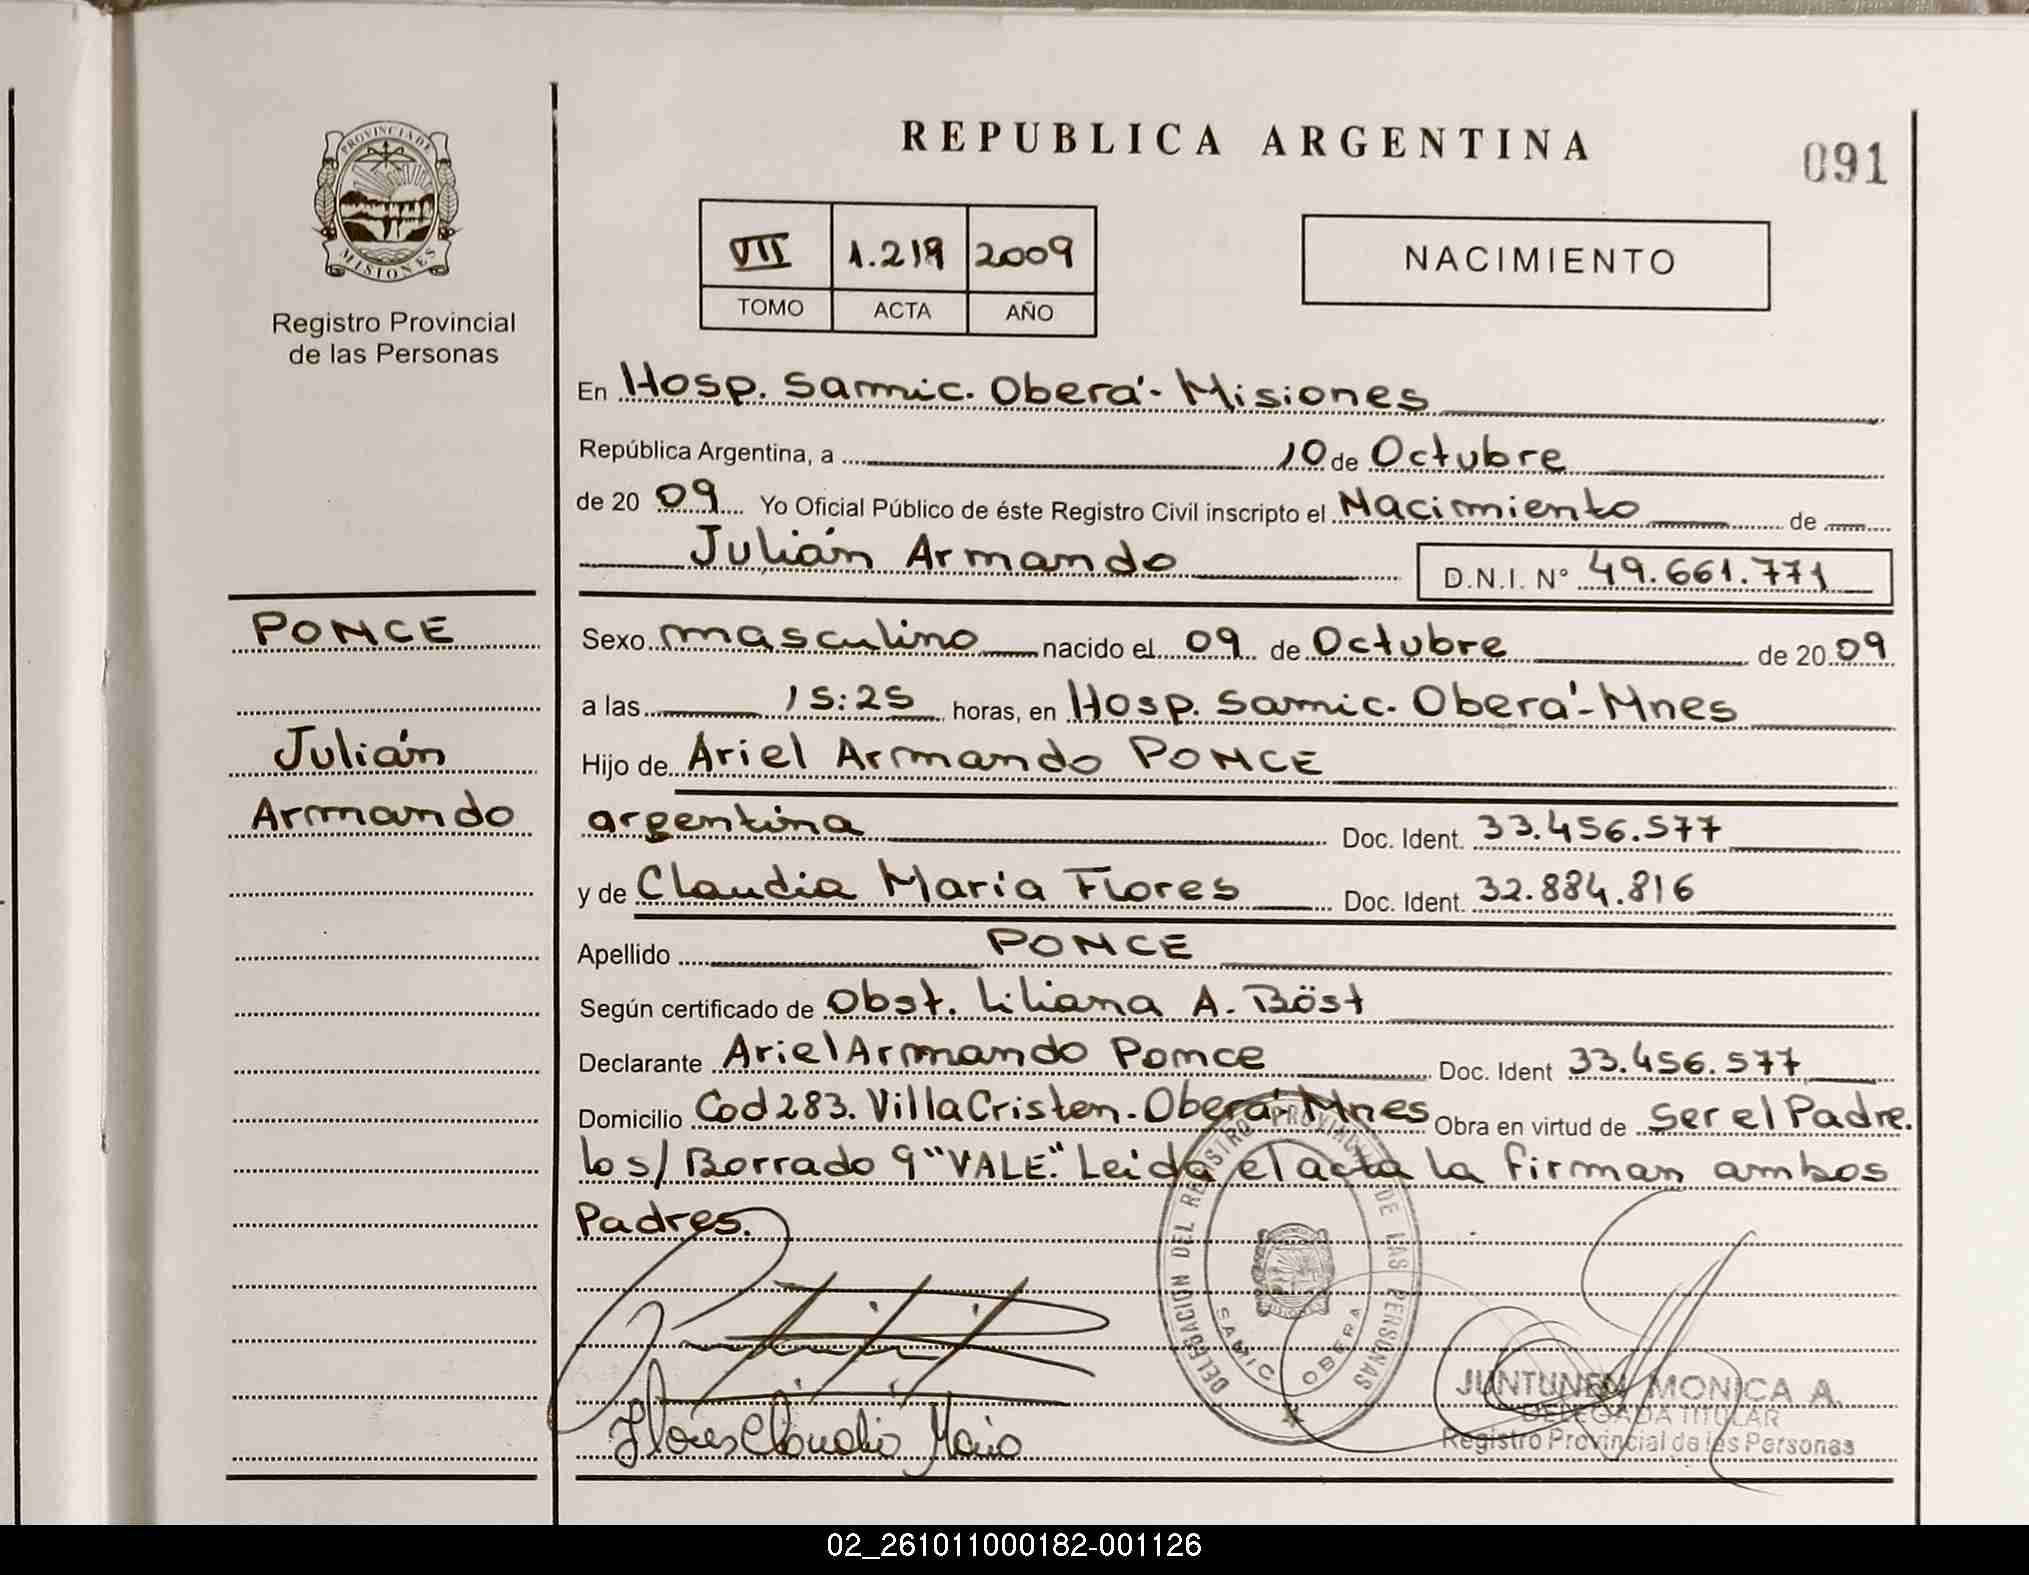 REPUBLICA ARGENTINA
091
PROVINCIA DE
MISIONES
Registro Provincial
de las Personas
VII 1.219 2009
TOMO ACTA AÑO
NACIMIENTO
En Hosp. Samic. Oberá - Misiones
República Argentina, a 10 de Octubre
de 20 09 Yo Oficial Público de éste Registro Civil inscripto el Nacimiento de
Julián Armando D.N.I. N° 49.661.771
PONCE
Julián
Armando
Sexo masculino nacido el 09 de Octubre de 20 09
a las 15:25 horas, en Hosp. Samic. Oberá - Mnes
Hijo de Ariel Armando PONCE
argentina Doc. Ident. 33.456.577
y de Claudia María Flores Doc. Ident. 32.884.816
Apellido PONCE
Según certificado de Obst. Liliana A. Böst
Declarante Ariel Armando Ponce Doc. Ident 33.456.577
Domicilio Cod 283. Villa Cristen. Oberá - Mnes Obra en virtud de Ser el Padre.
lo s/ Borrado 9 "VALE." Leida el acta la firman ambos
Padres.
DELEGACION DEL REGISTRO PROVINCIAL DE LAS PERSONAS
SAMIC OBERA
Flores Claudia Maria
JUNTUNEN MONICA A.
DELEGADA TITULAR
Registro Provincial de las Personas
02_261011000182-001126